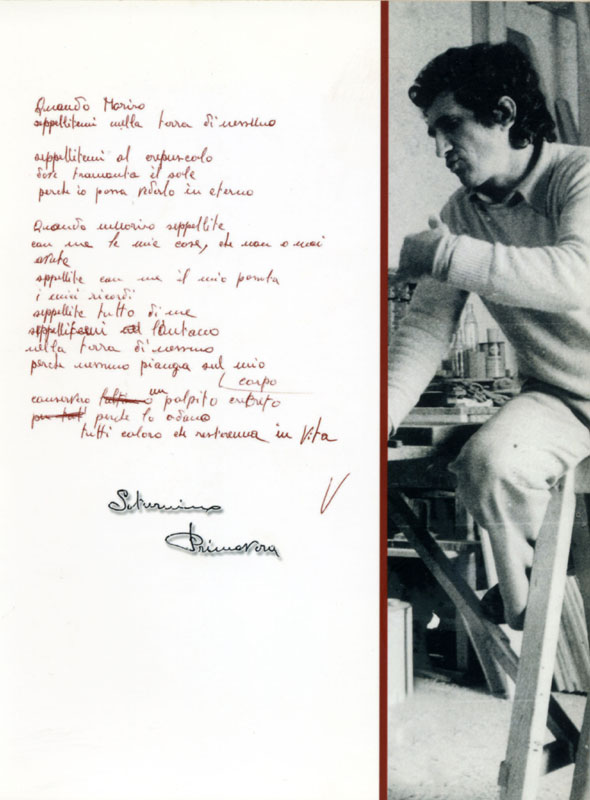 Quando Moriro
seppellitemi nella terra di nessuno
seppellitemi al crepuscolo
dove tramonta il sole
perche io possa vederlo in eterno
Quando morirò seppellite
con me le mie cose, che non o mai
avute
seppellite con me il mio passato
i miei ricordi
seppellite tutto di me
seppellitemi lontano
nella terra di nessuno
perche nessuno pianga sul mio
corpo
conservero un palpito
perche lo odano
tutti coloro che resteranno in Vita
V
Saturnino
Primavera